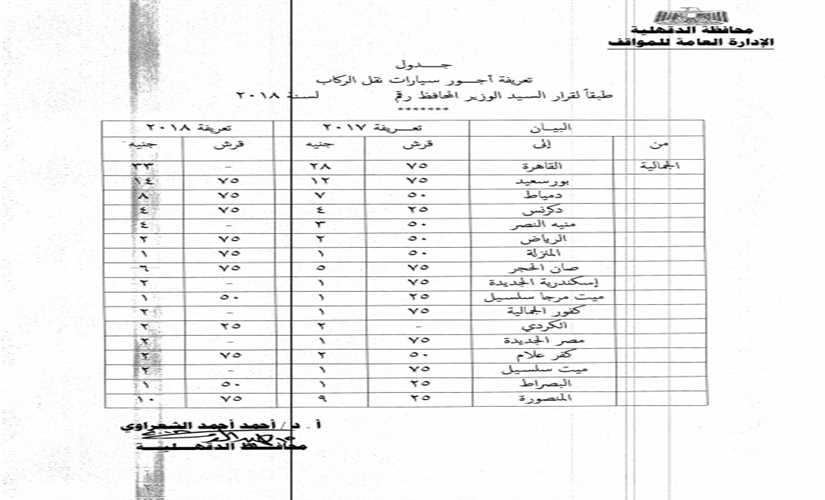 محافظة الدقهلية
الإدارة العامة للمواقف
جـــدول
تعريفة أجـور سيارات نقل الركاب
طبقاً لقرار السيد الوزير المحافظ رقم لسنة ٢٠١٨
*******
البيـان تعـريفة ٢٠١٧ تعريفة ٢٠١٨
من إلى قرش جنيه قرش جنيه
الجمالية القاهرة ٧٥ ٢٨ - ٣٣
بورسعيد ٧٥ ١٢ ٧٥ ١٤
دمياط ٥٠ ٧ ٧٥ ٨
دكرنس ٢٥ ٤ ٧٥ ٤
منيه النصر ٥٠ ٣ - ٤
الرياض ٥٠ ٢ ٧٥ ٢
المنزلة ٥٠ ١ ٧٥ ١
صان الحجر ٧٥ ٥ ٧٥ ٦
إسكندرية الجديدة ٧٥ ١ - ٢
ميت مرجا سلسيل ٢٥ ١ ٥٠ ١
كفور الجمالية ٧٥ ١ - ٢
الكردي - ٢ ٢٥ ٢
مصر الجديدة ٧٥ ١ - ٢
كفر علام ٥٠ ٢ ٧٥ ٢
ميت سلسيل ٧٥ ١ - ٢
البصراط ٢٥ ١ ٥٠ ١
المنصورة ٢٥ ٩ ٧٥ ١٠
أ . د / أحمد أحمد الشعراوي
محافـظ الدقهلـيـة